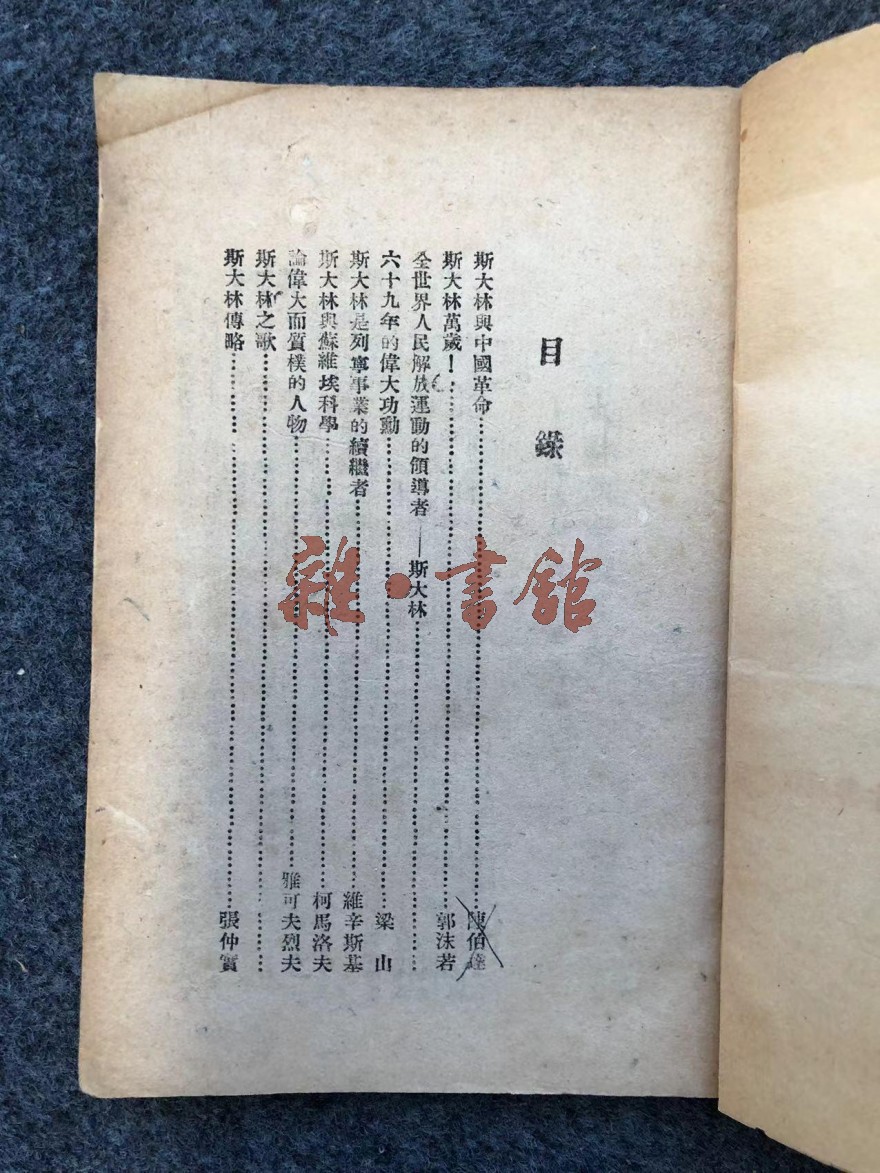 目錄
斯大林與中國革命……陳伯達
斯大林萬歲！……郭沫若
全世界人民解放運動的領導者——斯大林……
六十九年的偉大功勳……梁山
斯大林是列寧事業的續繼者……維辛斯基
斯大林與蘇維埃科學……柯馬洛夫
論偉大而質樸的人物……雅可夫烈夫
斯大林之歌……
斯大林傳略……張仲實
雜·書館